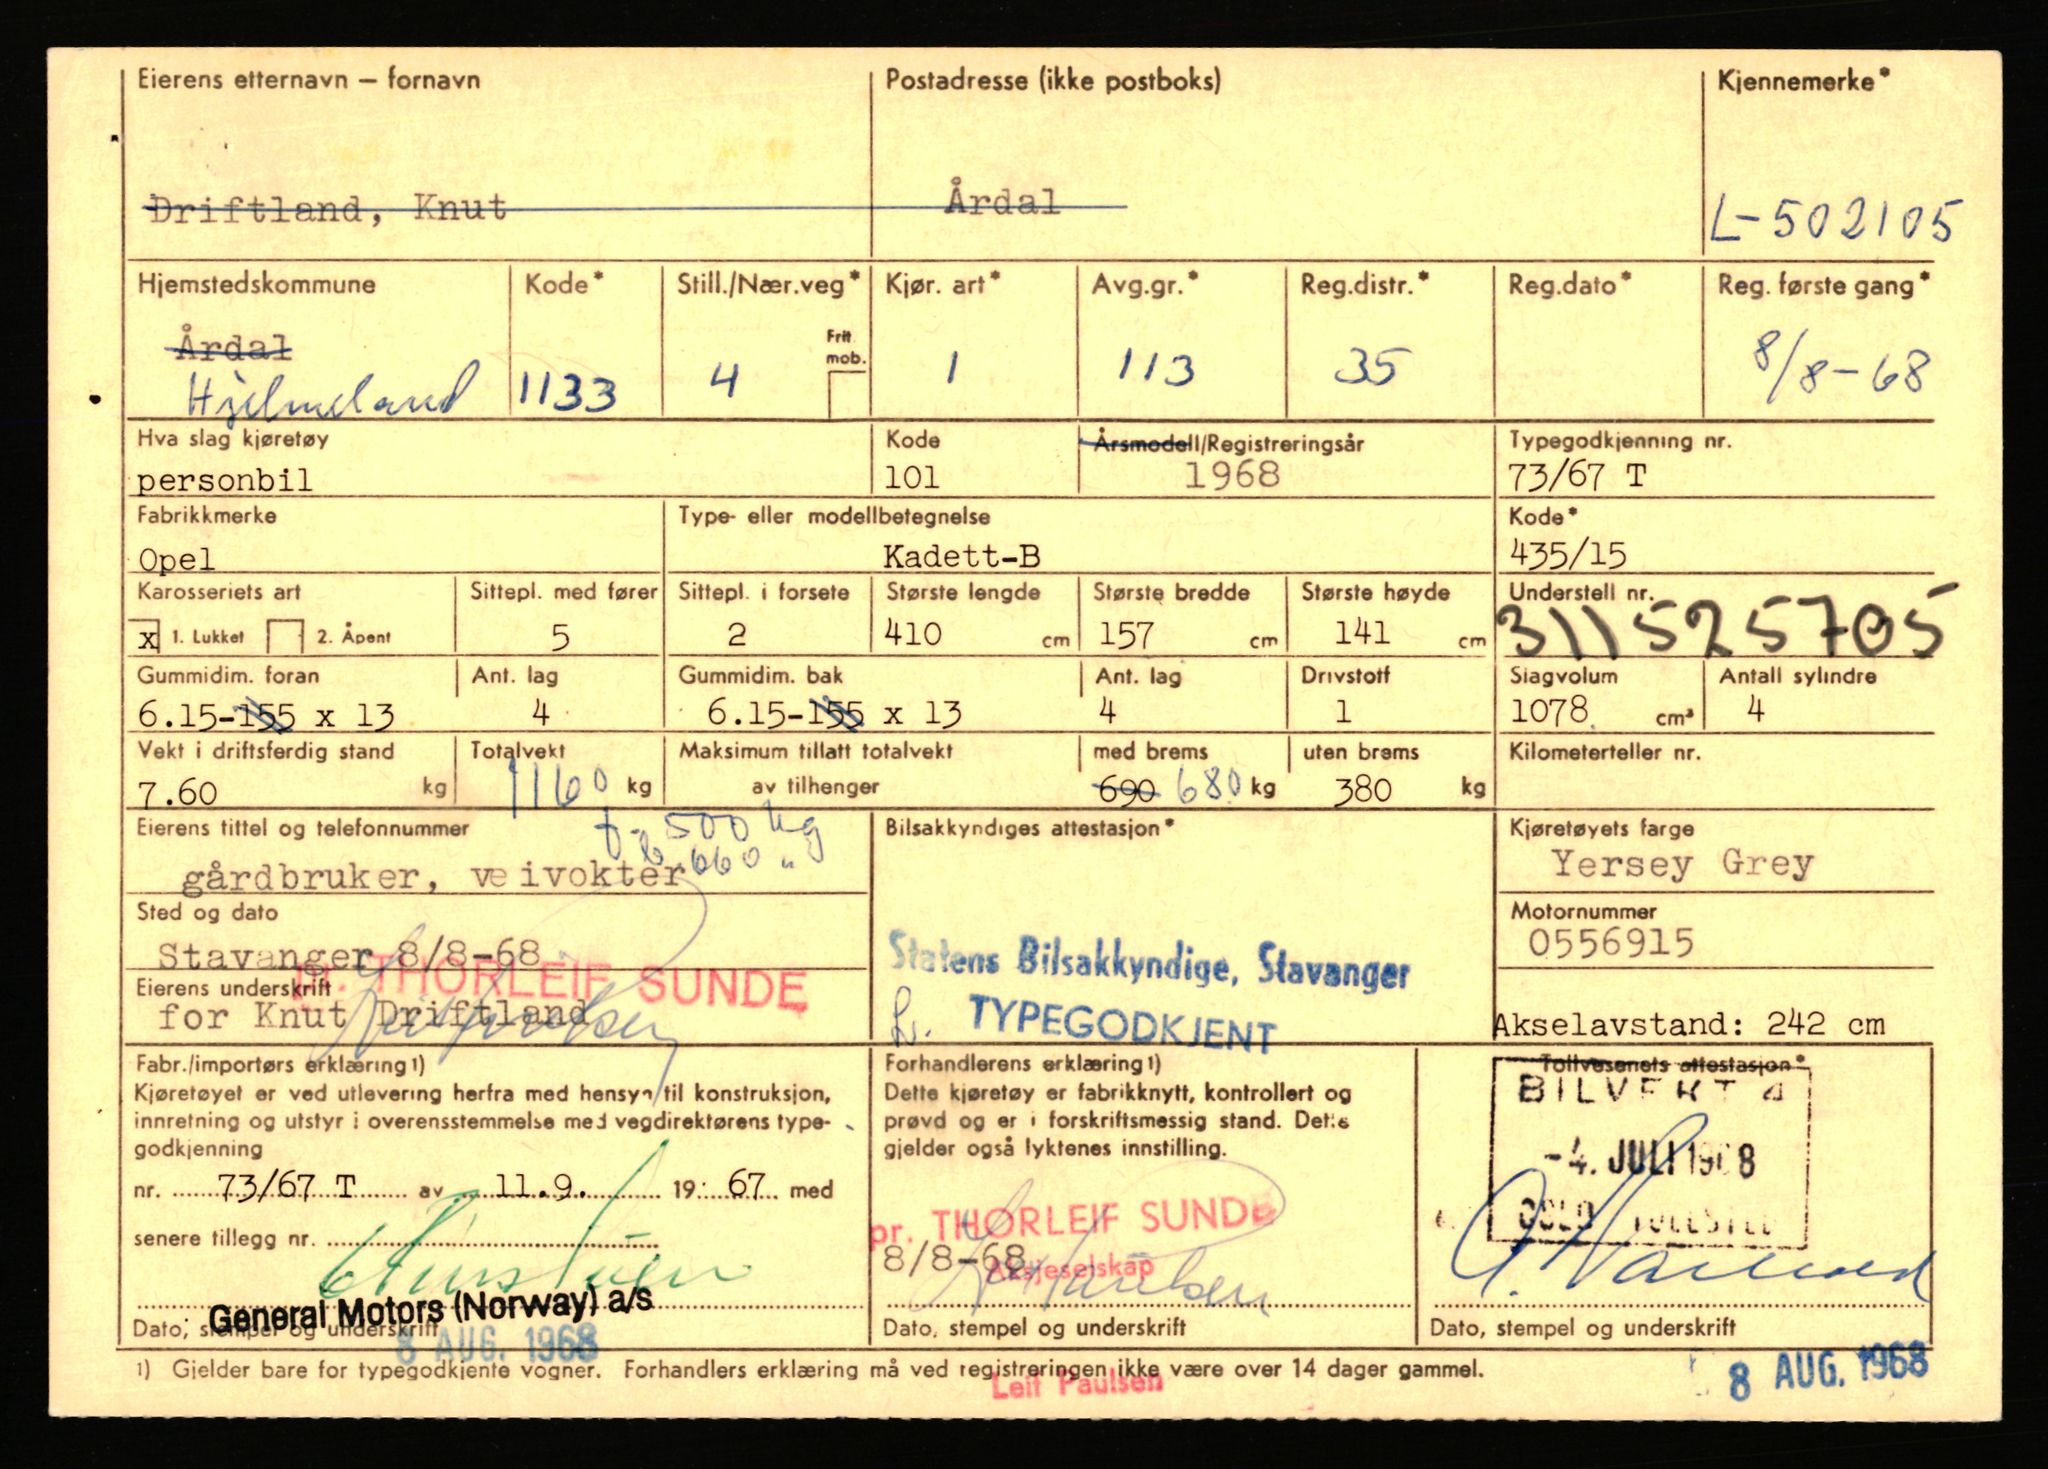 Eierens etternavn – fornavn Postadresse (ikke postboks) Kjennemerke*
Driftland, Knut Årdal L-502105
Hjemstedskommune Kode* Still./Nær.veg* Kjør. art* Avg.gr.* Reg.distr.* Reg.dato* Reg. første gang*
Årdal Frit. mob.
Hjelmeland 1133 4 1 113 35 8/8-68
Hva slag kjøretøy Kode Årsmodell/Registreringsår Typegodkjenning nr.
personbil 101 1968 73/67 T
Fabrikkmerke Type- eller modellbetegnelse Kode*
Opel Kadett-B 435/15
Karosseriets art Sittepl. med fører Sittepl. i forsete Største lengde Største bredde Største høyde Understell nr.
x 1. Lukket 2. Åpent 5 2 410 cm 157 cm 141 cm 311525705
Gummidim. foran Ant. lag Gummidim. bak Ant. lag Drivstoff Slagvolum Antall sylindre
6.15-155 x 13 4 6.15-155 x 13 4 1 1078 cm³ 4
Vekt i driftsferdig stand Totalvekt Maksimum tillatt totalvekt med brems uten brems Kilometerteller nr.
7.60 kg 1160 kg av tilhenger 690 680 kg 380 kg
f. 500 kg
b. 660 "
Eierens tittel og telefonnummer Bilsakkyndiges attestasjon* Kjøretøyets farge
gårdbruker, veivokter Yersey Grey
Sted og dato Motornummer
Stavanger 8/8-68 0556915
pr. THORLEIF SUNDE Statens Bilsakkyndige, Stavanger
Eierens underskrift
for Knut Driftland TYPEGODKJENT Akselavstand: 242 cm
Fabr./importørs erklæring 1) Forhandlerens erklæring 1) Tollvesenets attestasjon*
Kjøretøyet er ved utlevering herfra med hensyn til konstruksjon, Dette kjøretøy er fabrikknytt, kontrollert og
innretning og utstyr i overensstemmelse med vegdirektørens type- prøvd og er i forskriftsmessig stand. Dette
godkjenning gjelder også lyktenes innstilling.
BILVERKT 4
-4. JULI 1968
OSLO TOLLSTED
nr. 73/67 T av 11.9. 1967 med
pr. THORLEIF SUNDE
senere tillegg nr. 8/8-68
Aksjeselskap
General Motors (Norway) a/s
Dato, stempel og underskrift Dato, stempel og underskrift Dato, stempel og underskrift
8 AUG. 1968
1) Gjelder bare for typegodkjente vogner. Forhandlers erklæring må ved registreringen ikke være over 14 dager gammel.
Leif Paulsen
8 AUG. 1968